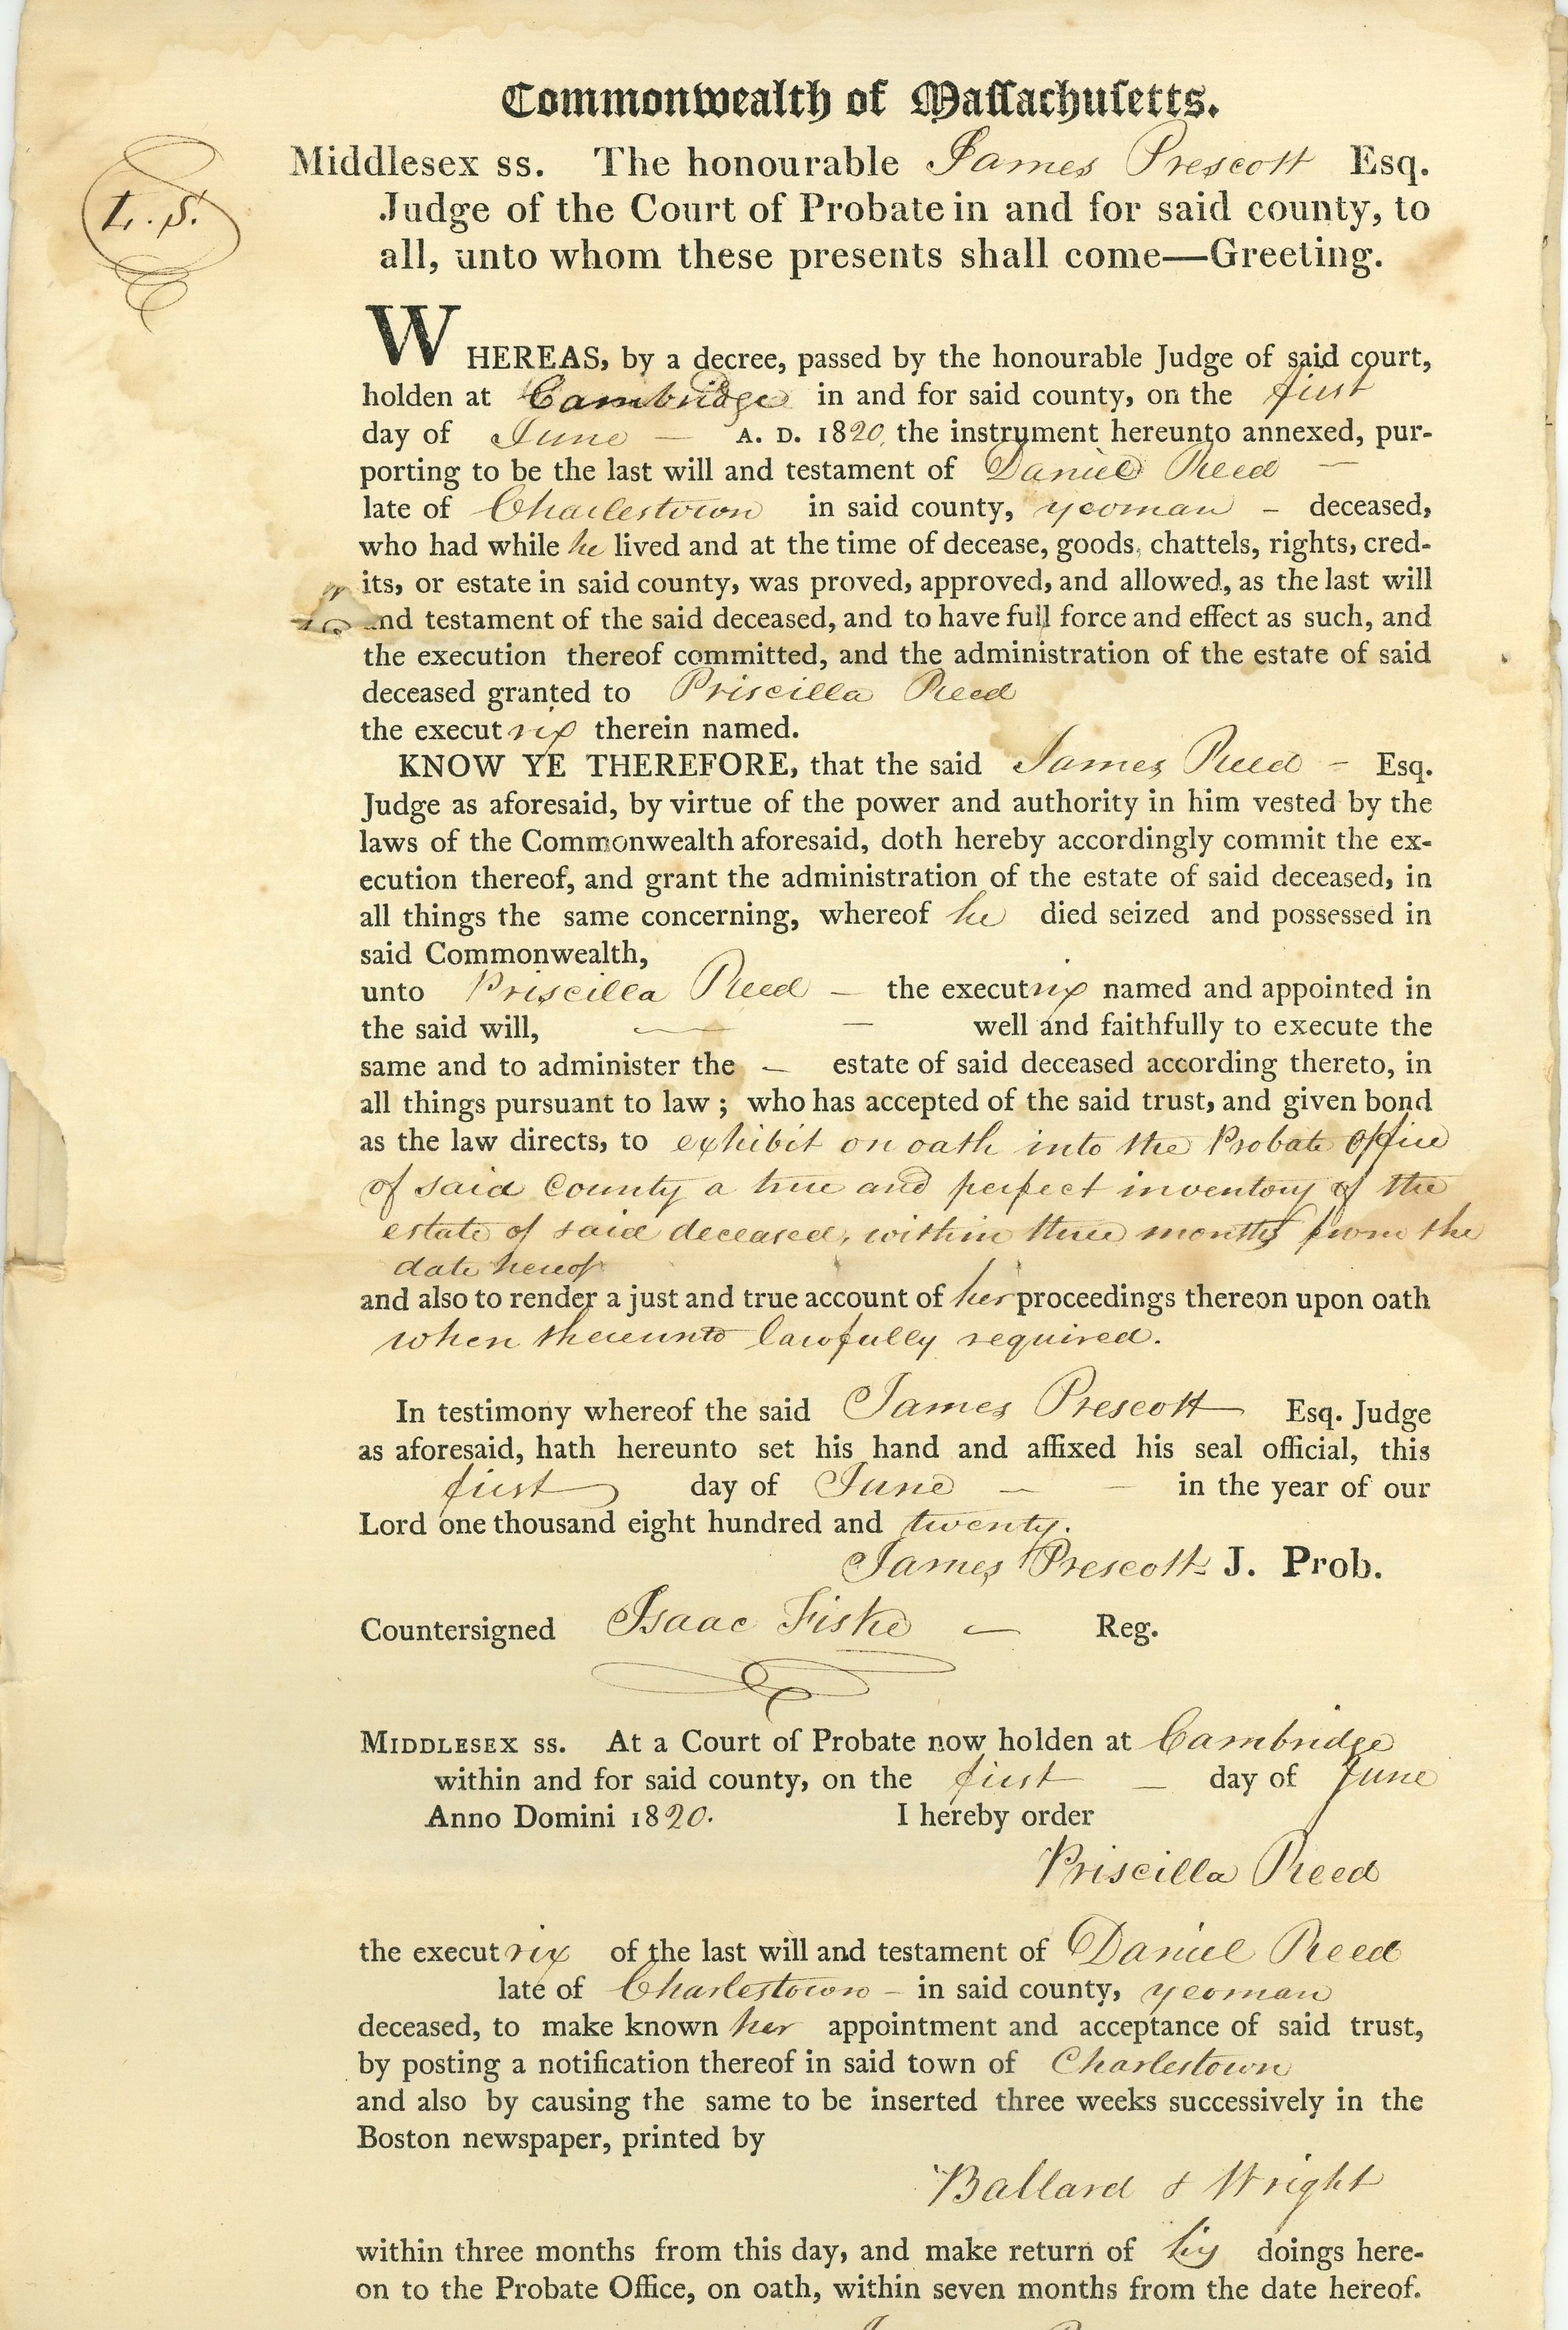 Commonwealth of Maſſachuſetts.
L. S.
Middlesex ss. The honourable James Prescott Esq.
Judge of the Court of Probate in and for said county, to
all, unto whom these presents shall come—Greeting.
WHEREAS, by a decree, passed by the honourable Judge of said court,
holden at Cambridge in and for said county, on the first
day of June — A. D. 1820, the instrument hereunto annexed, pur-
porting to be the last will and testament of Daniel Reed —
late of Charlestown in said county, yeoman - deceased,
who had while he lived and at the time of decease, goods, chattels, rights, cred-
its, or estate in said county, was proved, approved, and allowed, as the last will
and testament of the said deceased, and to have full force and effect as such, and
the execution thereof committed, and the administration of the estate of said
deceased granted to Priscilla Reed
the executrix therein named.
KNOW YE THEREFORE, that the said James Reed - Esq.
Judge as aforesaid, by virtue of the power and authority in him vested by the
laws of the Commonwealth aforesaid, doth hereby accordingly commit the ex-
ecution thereof, and grant the administration of the estate of said deceased, in
all things the same concerning, whereof he died seized and possessed in
said Commonwealth,
unto Priscilla Reed — the executrix named and appointed in
the said will, — — well and faithfully to execute the
same and to administer the — estate of said deceased according thereto, in
all things pursuant to law ; who has accepted of the said trust, and given bond
as the law directs, to exhibit on oath into the Probate Office
of said County a true and perfect inventory of the
estate of said deceased, within three months from the
date hereof
and also to render a just and true account of her proceedings thereon upon oath
when thereunto lawfully required.
In testimony whereof the said James Prescott Esq. Judge
as aforesaid, hath hereunto set his hand and affixed his seal official, this
first day of June — - in the year of our
Lord one thousand eight hundred and twenty.
James Prescott J. Prob.
Countersigned Isaac Fiske — Reg.
MIDDLESEX ss. At a Court of Probate now holden at Cambridge
within and for said county, on the first — day of June
Anno Domini 1820. I hereby order
Priscilla Reed
the executrix of the last will and testament of Daniel Reed
late of Charlestown - in said county, yeoman
deceased, to make known her appointment and acceptance of said trust,
by posting a notification thereof in said town of Charlestown
and also by causing the same to be inserted three weeks successively in the
Boston newspaper, printed by
Ballard & Wright
within three months from this day, and make return of his doings here-
on to the Probate Office, on oath, within seven months from the date hereof.